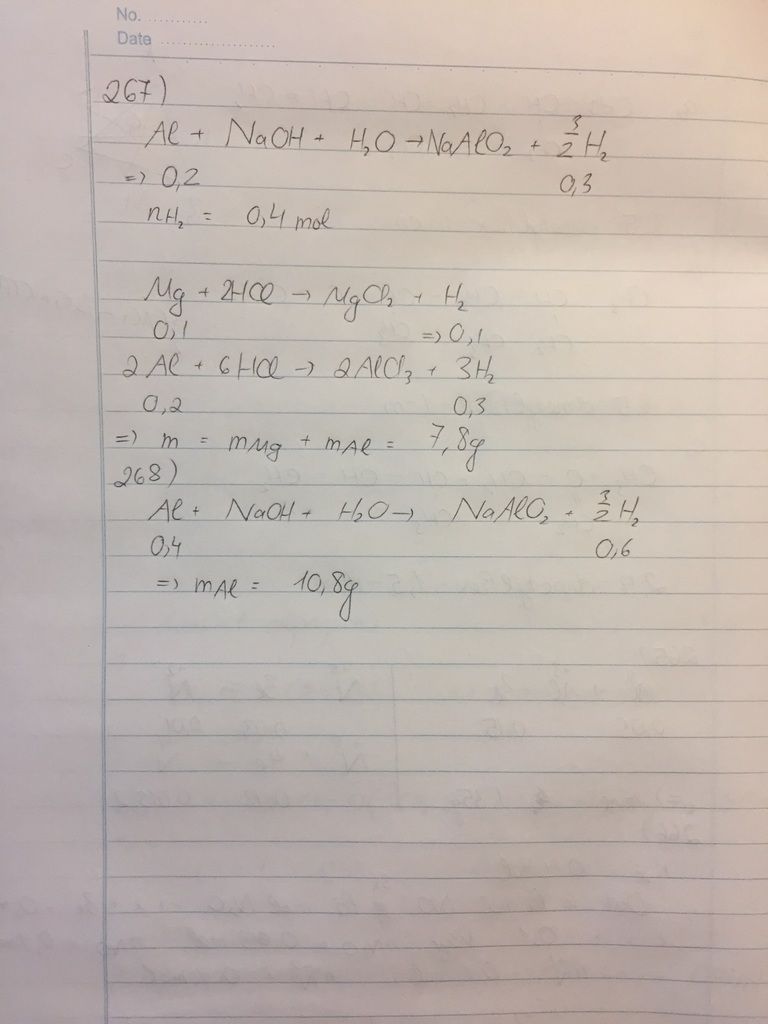 No. ............
Date ......................
267)
Al + NaOH + H₂O → NaAlO₂ + 3/2 H₂
=> 0,2 0,3
nH₂ = 0,4 mol
Mg + 2HCl → MgCl₂ + H₂
0,1 => 0,1
2Al + 6HCl → 2AlCl₃ + 3H₂
0,2 0,3
=> m = mMg + mAl = 7,8g
268)
Al + NaOH + H₂O → NaAlO₂ + 3/2 H₂
0,4 0,6
=> mAl = 10,8g